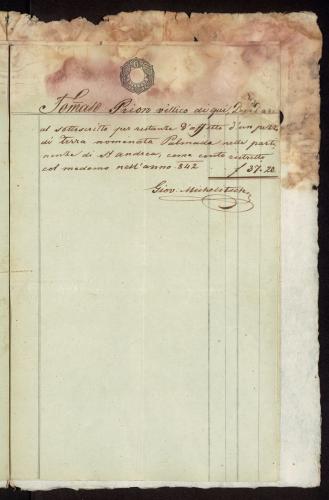 Tomaso Prion villico di qui, Deve dare
al sottoscritto per restante d'affitto d'un pezzo
di Terra nominata Palmada nelle perti
nenze di St Andrea, come conto ristretto
col medemo nell'anno 842 f 37.20
Giov. Micholitsch